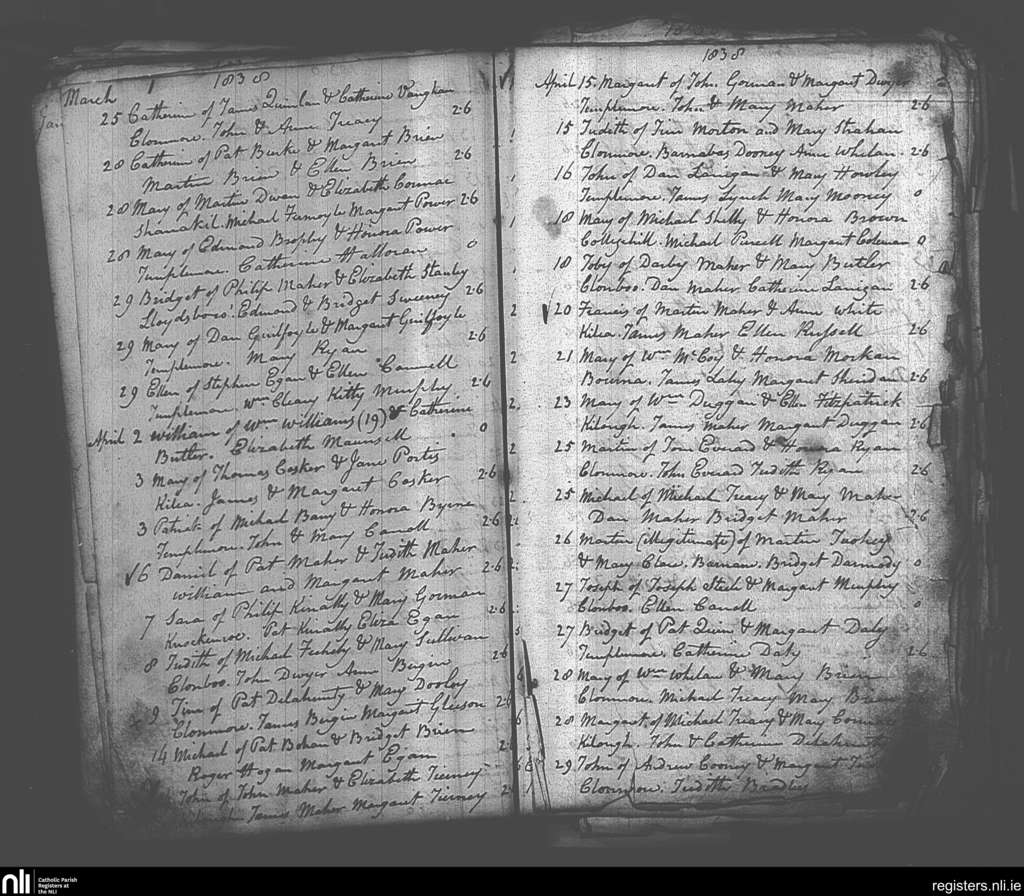 1838
March
25 Catherine of James Quinlan & Catherine Vaughan
Clonmore. John & Anne Treacy 2·6
28 Catherine of Pat Burke & Margaret Brien
Martin Brien & Ellen Brien 2·6
28 Mary of Martin Dwan & Elizabeth Cormac
Shanakil. Michael Fernoyle Margaret Power 2·6
28 Mary of Edmund Brophy & Honora Power
Templemore. Catherine Halloran 0
29 Bridget of Philip Maher & Elizabeth Stanley
Lloydsboro. Edmund & Bridget Sweeney 2·6
29 Mary of Dan Guilfoyle & Margaret Guilfoyle
Templemore. Mary Ryan 2·6
29 Ellen of Stephen Egan & Ellen Cannell
Templemore. Wm Cleary Kitty Murphy 2·6
April 2 William of Wm Williams (19) & Catherine
Butler. Elizabeth Maunsell 0
3 Mary of Thomas Casker & Jane Portis
Kilea. James & Margaret Casker 2·6
3 Patrick of Michael Barry & Honora Byrne
Templemore. John & Mary Carroll 2·6
√6 Daniel of Pat Maher & Judith Maher
William and Margaret Maher 2·6
7 Sara of Philip Kinally & Mary Gorman
Knockanroe. Pat Kinally Eliza Egan 2·6
8 Judith of Michael & Mary Sullivan
Clonboo. John Dwyer Anne Bergin 2·6
9 Tim of Pat Delahunty & Mary Dooley
Clonmore. James Bergin Margaret Gleeson 2·6
14 Michael of Pat Bohan & Bridget Brien
Roger Hogan Margaret Egan
John of John Maher & Elizabeth Tierney
James Maher Margaret Tierney
1838
April 15. Margaret of John Gorman & Margaret Dwyer
Templemore. John & Mary Maher 2·6
15 Judith of Tim Morton and Mary Strahan
Clonmore. Barnabas Dooney Anne Whelan. 2·6
16 John of Dan Lanigan & Mary Howley
Templemore. James Lynch Mary Mooney 0
18 Mary of Michael Shelly & Honora Brown
Collyhill. Michael Pursell Margaret Coleman 0
18 Toby of Darby Maher & Mary Butler
Clonboo. Dan Maher Catherine Lanigan 2·6
√20 Francis of Martin Maher & Anne White
Kilea. James Maher Ellen Russell 2·6
21 Mary of Wm McCoy & Honora Morkan
Bourna. James Lahy Margaret Sheridan 2·6
23 Mary of Wm Duggan & Ellen Fitzpatrick
Kilough. James Maher Margaret Duggan 2·6
25 Martin of Tom Everard & Honora Ryan
Clonmore. John Everard Judith Ryan 2·6
25 Michael of Michael Treacy & Mary Maher
Dan Maher Bridget Maher 2·6
26 Martin (Illegitimate) of Martin Tuohey
& Mary Clare. Barnane. Bridget Darmody 0
27 Joseph of Joseph Steele & Margaret Murphy
Clonboo. Ellen Carroll 0
27 Bridget of Pat Quin & Margaret Daly
Templemore. Catherine Daly 2·6
28 Mary of Wm Whelan & Mary Brien
Clonmore. Michael Treacy Mary Brien
28 Margaret of Michael Treacy & Mary Cormac
Kilough. John & Catherine Delahunty
29 John of Andrew Cooney & Margaret
Clonmore. Judith Bradley
nli
Catholic Parish
Registers at
the NLI
registers.nli.ie